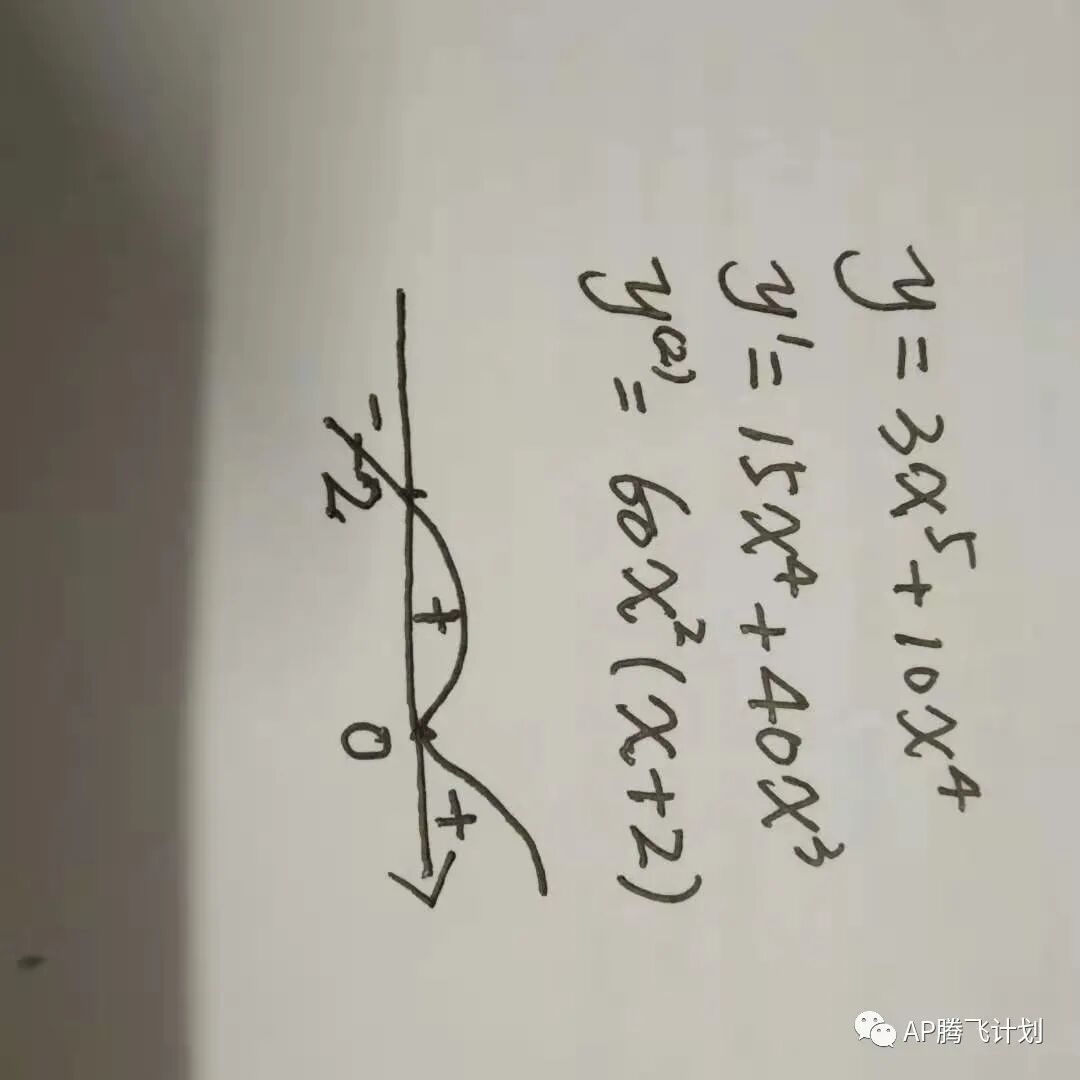 y = 3x⁵ + 10x⁴
y' = 15x⁴ + 40x³
y⁽²⁾ = 60x² (x+2)
- + +
-2 0
AP腾飞计划